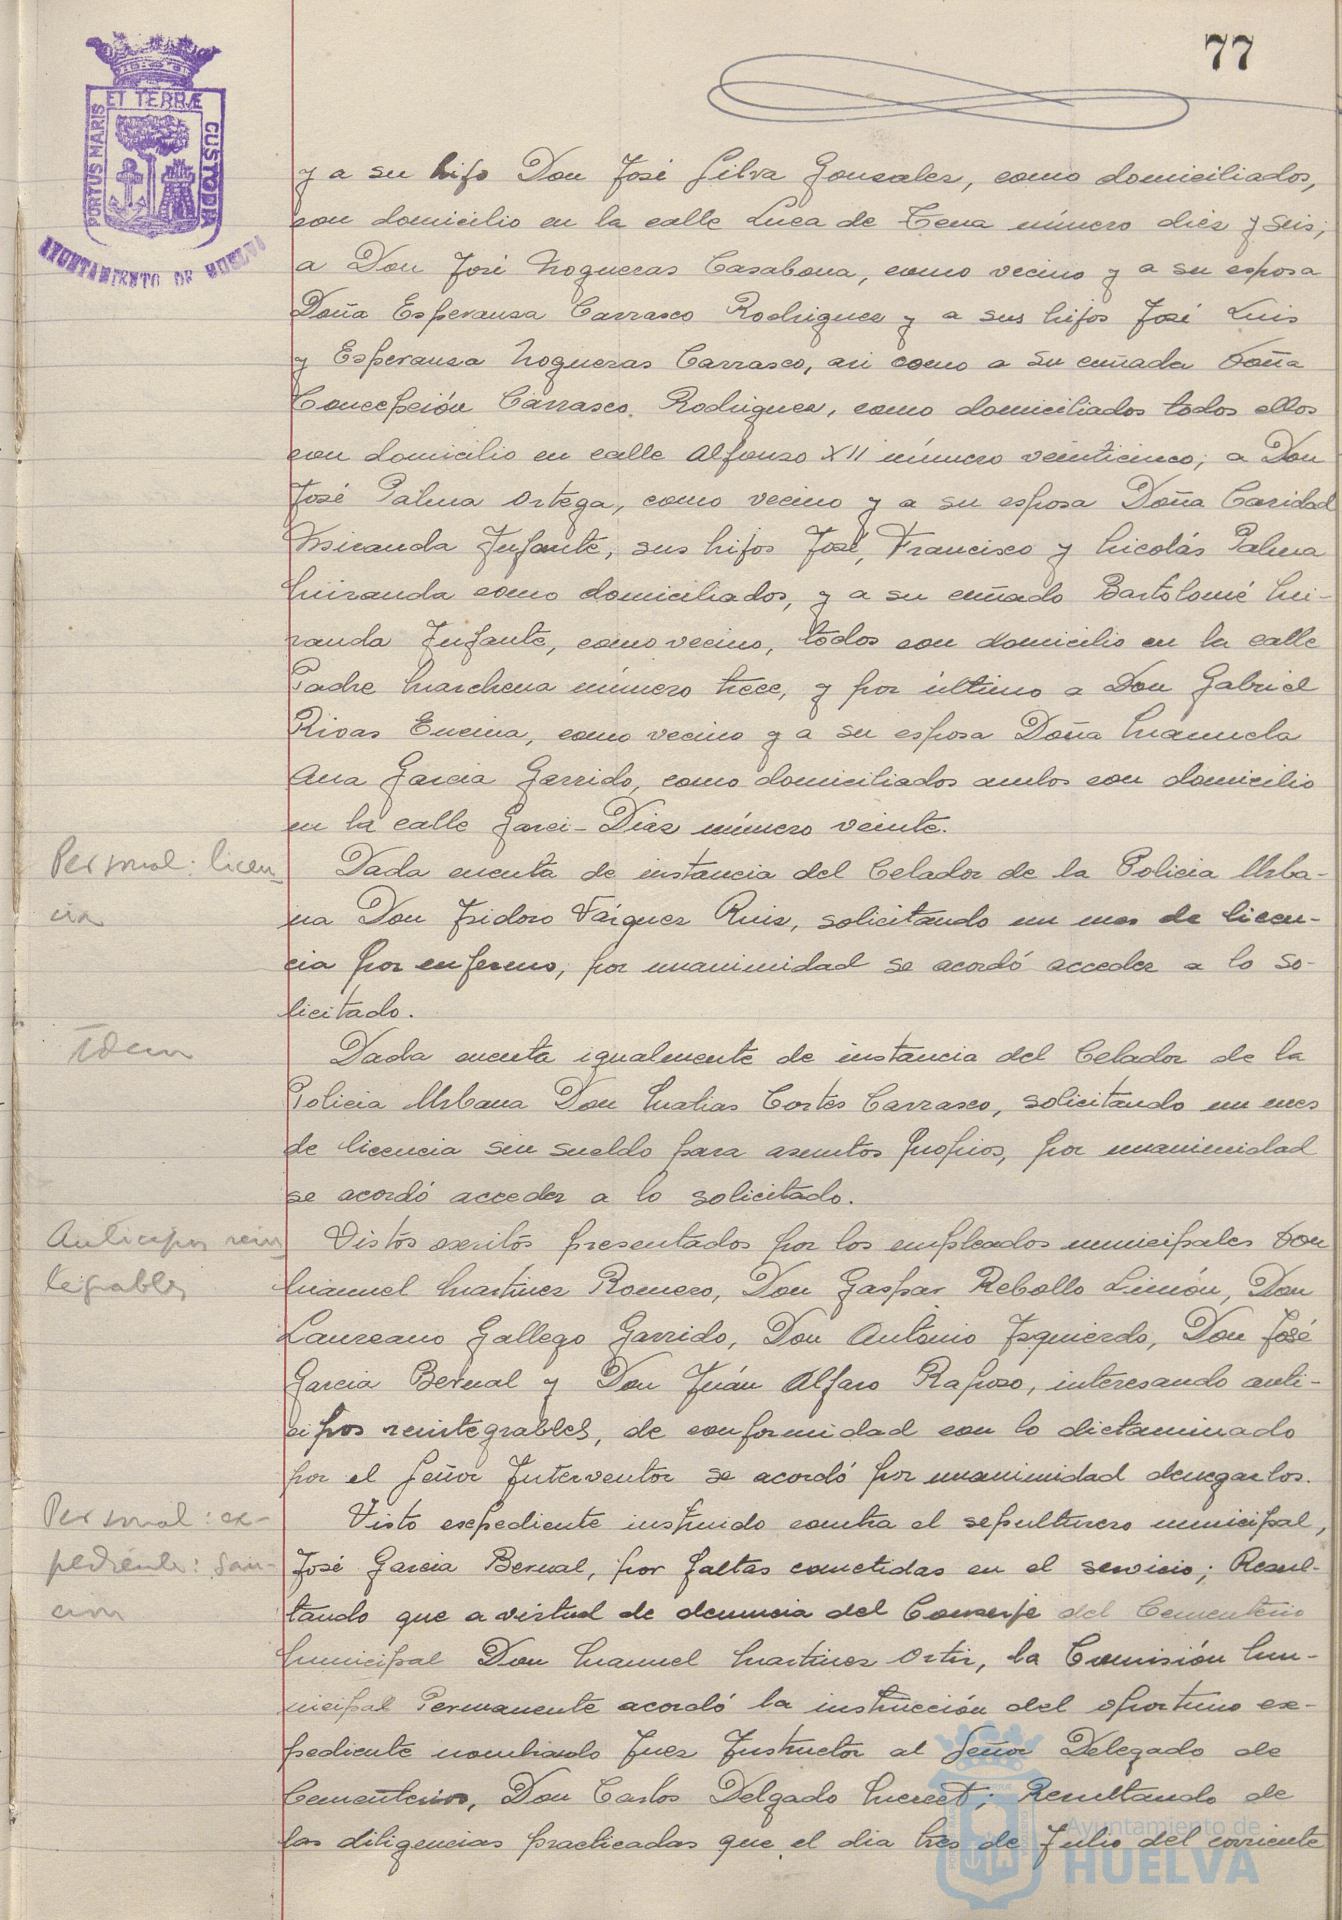 77
PORTUS MARIS
ET TERRÆ
CUSTODIA
AYUNTAMIENTO DE HUELVA
y a su hijo Don José Silva Gonzalez, como domiciliados,
con domicilio en la calle Luca de Tena número diez y seis;
a Don José Nogueras Casabona, como vecino y a su esposa
Doña Esperanza Carrasco Rodriguez y a sus hijos José Luis
y Esperanza Nogueras Carrasco, asi como a su cuñada Doña
Concepción Carrasco Rodriguez, como domiciliados todos ellos
con domicilio en calle Alfonso XII número veinticinco; a Don
José Palma Ortega, como vecino y a su esposa Doña Caridad
Miranda Infante, sus hijos José, Francisco y Nicolás Palma
Miranda como domiciliados, y a su cuñado Bartolomé Mi-
randa Infante, como vecino, todos con domicilio en la calle
Padre Marchena número trece, y por último a Don Gabriel
Rivas Encina, como vecino y a su esposa Doña Manuela
Ana Garcia Garrido, como domiciliados ambos con domicilio
en la calle Garci-Diaz número veinte.
Personal: licen-
cia
Dada cuenta de instancia del Celador de la Policia Urba-
na Don Isidoro Vázquez Ruiz, solicitando un mes de licen-
cia por enfermo, por unanimidad se acordó acceder a lo so-
licitado.
Idem
Dada cuenta igualmente de instancia del Celador de la
Policia Urbana Don Matias Cortés Carrasco, solicitando un mes
de licencia sin sueldo para asuntos propios, por unanimidad
se acordó acceder a lo solicitado.
Anticipos rein
tegrables
Vistos escritos presentados por los empleados municipales Don
Manuel Martinez Romero, Don Gaspar Rebollo Limón, Don
Laureano Gallego Garrido, Don Antonio Izquierdo, Don José
Garcia Bernal y Don Juán Alfaro Raposo, interesando anti-
cipos reintegrables, de conformidad con lo dictaminado
por el Señor Interventor se acordó por unanimidad denegarlos.
Personal: ex-
pediente: san-
cion
Visto expediente instruido contra el sepulturero municipal,
José Garcia Bernal, por faltas cometidas en el servicio; Resul-
tando que a virtud de denuncia del Conserje del Cementerio
Municipal Don Manuel Martinez Ortiz, la Comisión Mu-
nicipal Permanente acordó la instrucción del oportuno ex-
pediente nombrando Juez Instructor al Señor Delegado de
Cementerios, Don Carlos Delgado; Resultando de
las diligencias practicadas que el dia tres de Julio del corriente
Ayuntamiento de
HUELVA